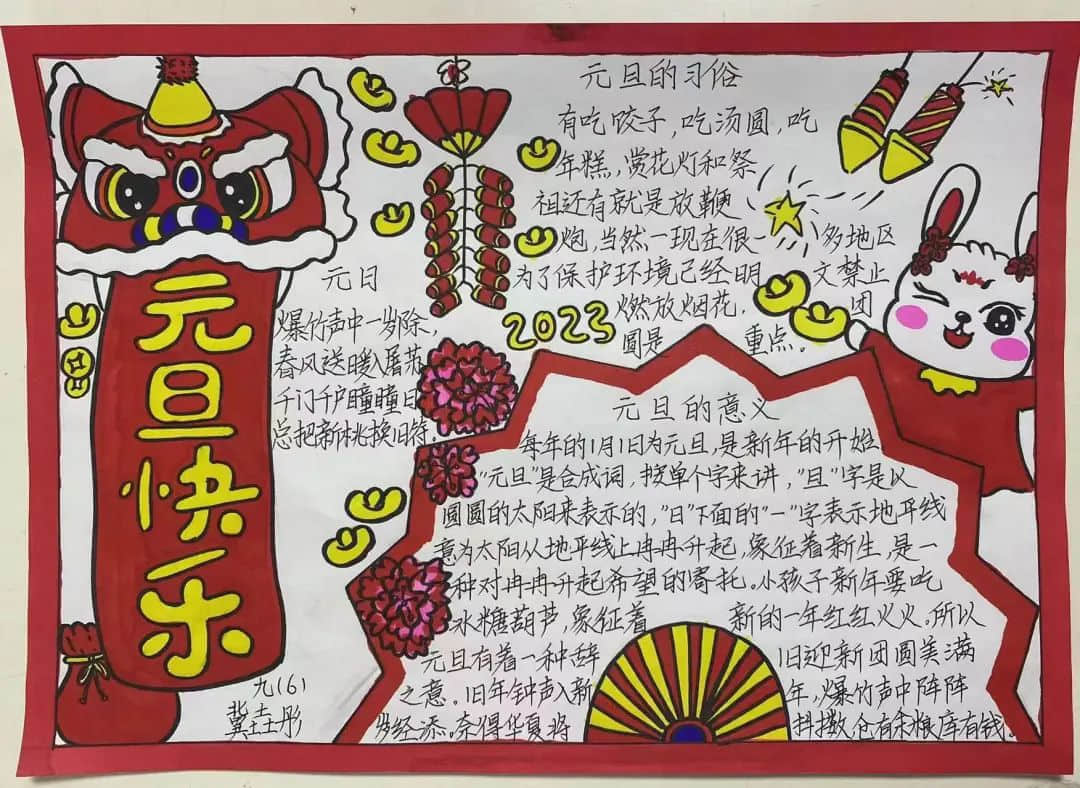 元旦快乐
元日
爆竹声中一岁除,
春风送暖入屠苏
千门千户瞳瞳日
总把新桃换旧符.
元旦的习俗
有吃饺子,吃汤圆,吃
年糕,赏花灯和祭
祖还有就是放鞭
炮,当然一现在很一多地区
为了保护环境已经明文禁止
燃放烟花,团
圆是重点。
2023
元旦的意义
每年的1月1日为元旦,是新年的开始
"元旦"是合成词,按单个字来讲,"旦"字是以
圆圆的太阳来表示的,"日"下面的"一"字表示地平线
意为太阳从地平线上冉冉升起,象征着新生,是一
种对冉冉升起希望的寄托。小孩子新年要吃
冰糖葫芦,象征着新的一年红红火火.所以
元旦有着一种辞旧迎新团圆美满
之意。旧年钟声入新年,爆竹声中阵阵
岁经添.奈得华夏将抖擞仓有余粮库有钱.
九(6)
冀彤